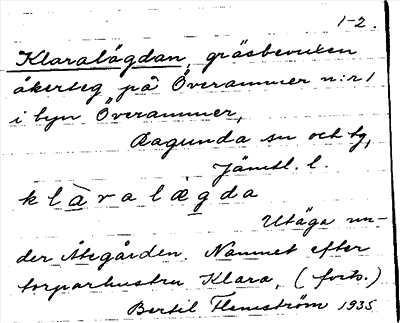 1-2.
Klaralägdan, gräsbevuxen
åkerteg på Överammer n:r 1
i byn Överammer,
Ragunda sn och tg,
Jämtl. l.
klàralägda
Utäga un-
der Åsegården. Namnet efter
torparhustru Klara, (forts.)
Bertil Flemström 1935